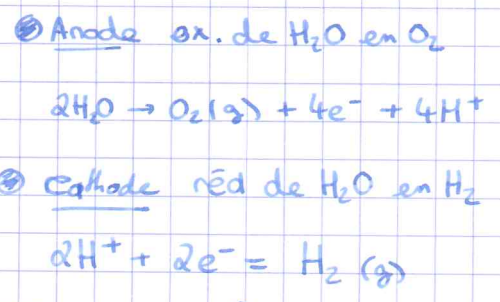 Anode ox. de H₂O en O₂
2H₂O → O₂(g) + 4e⁻ + 4H⁺
Cathode réd de H₂O en H₂
2H⁺ + 2e⁻ = H₂ (g)